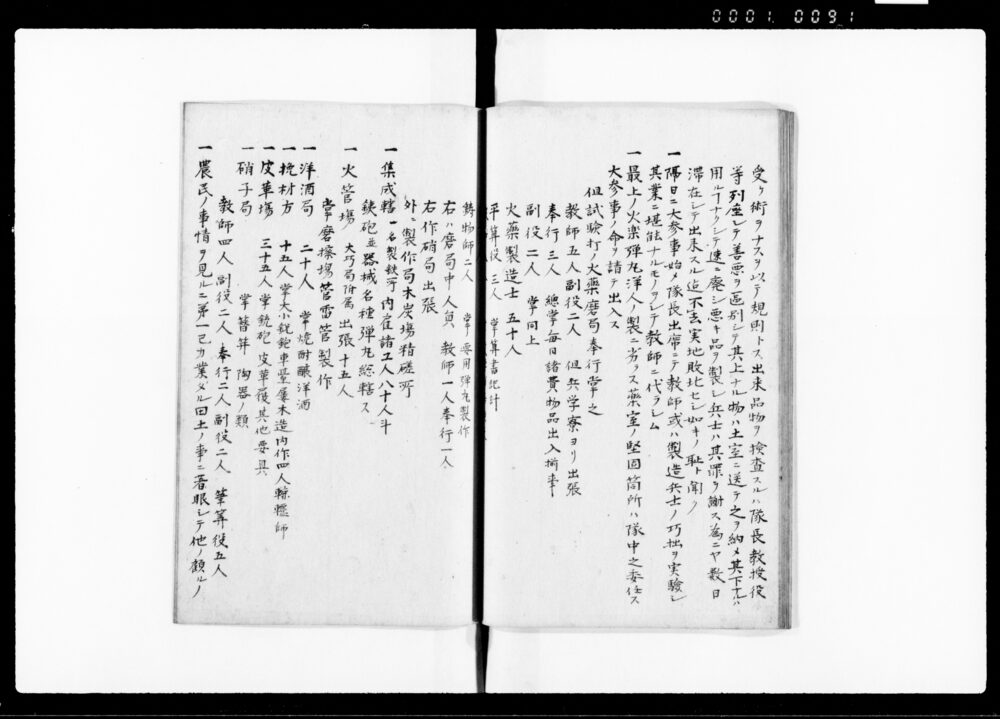 0001 0091
受ケ術ヲナスヲ以テ規則トス出来品物ヲ検査スルハ隊長教授役
等列座シテ善悪ヲ区別シテ其上ナル物ハ土室ニ送テ之ヲ納メ其下ナルハ
用ルヿナクシテ速ニ廃シ悪キ品ヲ製シ兵士ハ其罪ヲ謝ス為ニヤ数日
滞在シテ出来スル迄不去実地敗北セシ如キノ恥ト聞ク
一隔日ニ大参事始メ隊長出席ニテ教師或ハ製造兵士ノ巧拙ヲ実験シ
其業ニ堪能ナルモノヲシテ教師ニ代ラシム
一最上ノ火薬弾丸洋人ノ製ニ劣ラス薬室ノ堅固箇所ハ隊中之委任ス
大参事ノ命ヲ請テ出入ス
但試験打ノ火薬磨局奉行掌之
教師五人副役二人 但兵学寮ヨリ出張
奉行三人 総掌毎日諸費物品出入揃事
副役二人 掌同上
火薬製造士 五十人
平算役 三人 掌算書記計
鋳物師二人 掌 要用弾丸製作
右ハ磨局中人員 教師一人奉行一人
右作硝局出張
外ニ製作局木炭場精磋所
一集成轄 一名製鉄所 内雇諸工人八十人斗
鉄砲並器械名種弾丸総轄ス
一火管場 大巧局附属 出張十五人
掌磨擦場管雷管製作
一洋酒局 二十人 掌焼酎醸洋酒
一挽材方 十五人掌大小銃鉋車臺屋木造内作四人轆轤師
一皮革場 三十五人掌銃砲皮革履其他要具
一硝子局 掌簪笄陶器ノ類
教師四人 副役二人 奉行二人副役二人 筆算役五人
一農民ノ事情ヲ見ルニ第一己カ業タル田土ノ事ニ着眼シテ他ノ顧ルノ